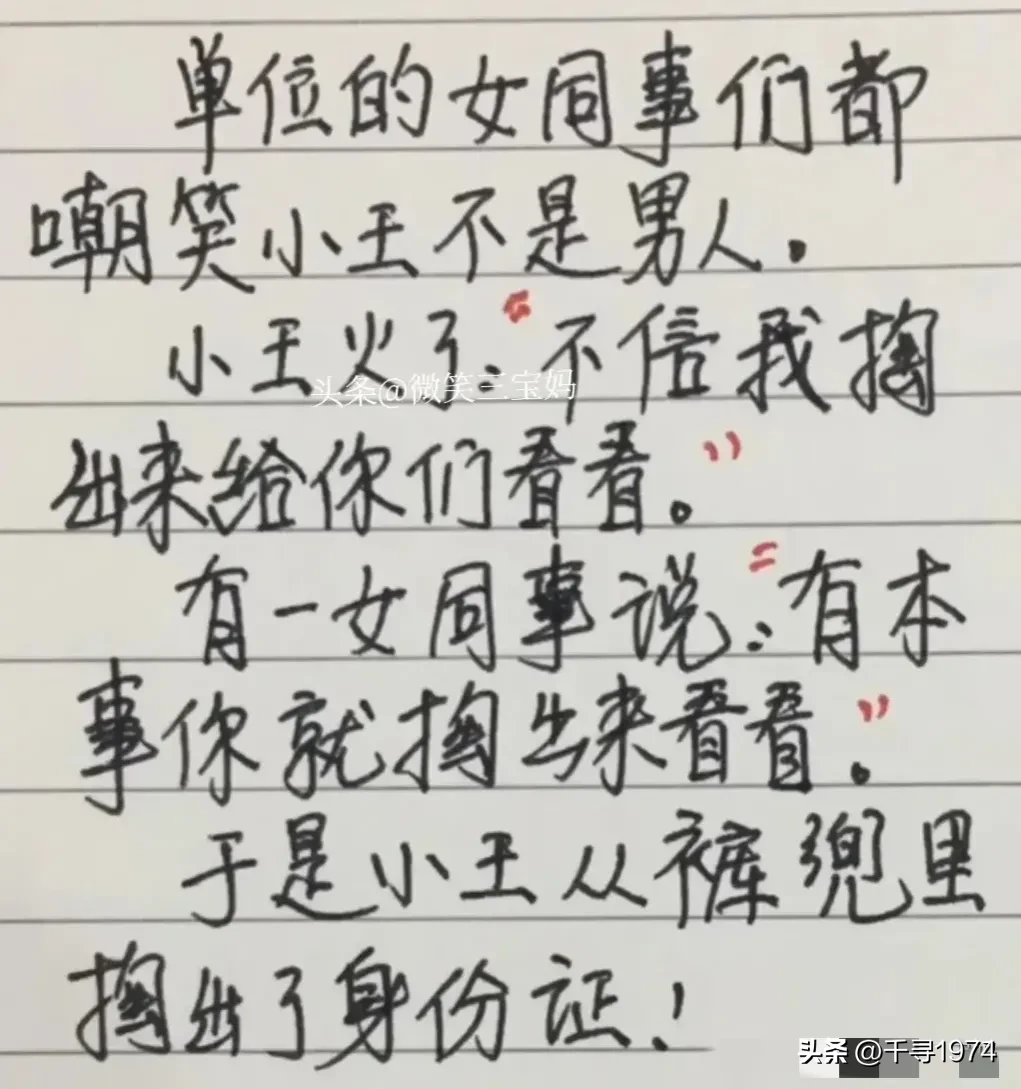 单位的女同事们都
嘲笑小王不是男人.
小王火了:“不信我掏
出来给你们看看。”
头条@微笑三宝妈
有一女同事说:“有本
事你就掏出来看看。”
于是小王从裤兜里
掏出了身份证!
头条 @千寻1974